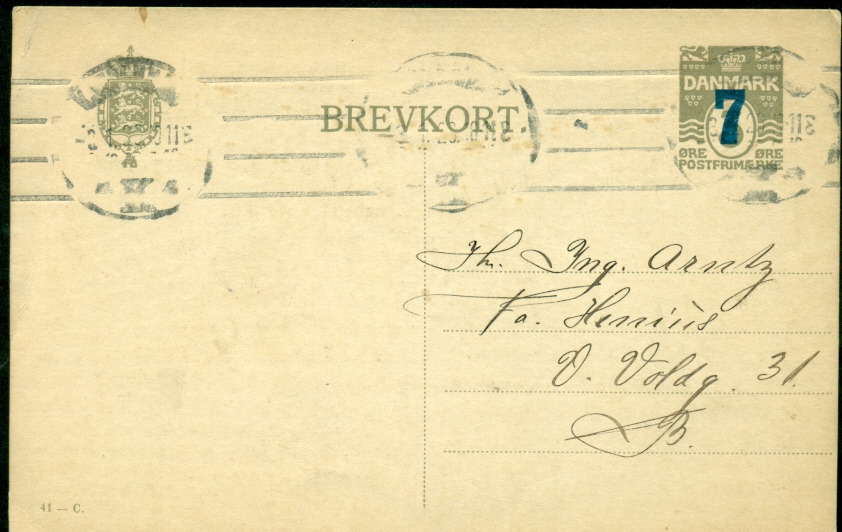 BREVKORT.
DANMARK
7
ØRE ØRE
POSTFRIMÆRKE
Hr. Ing. Arntz
Fa. Henius
V. Voldg. 31.
B.
41 — C.